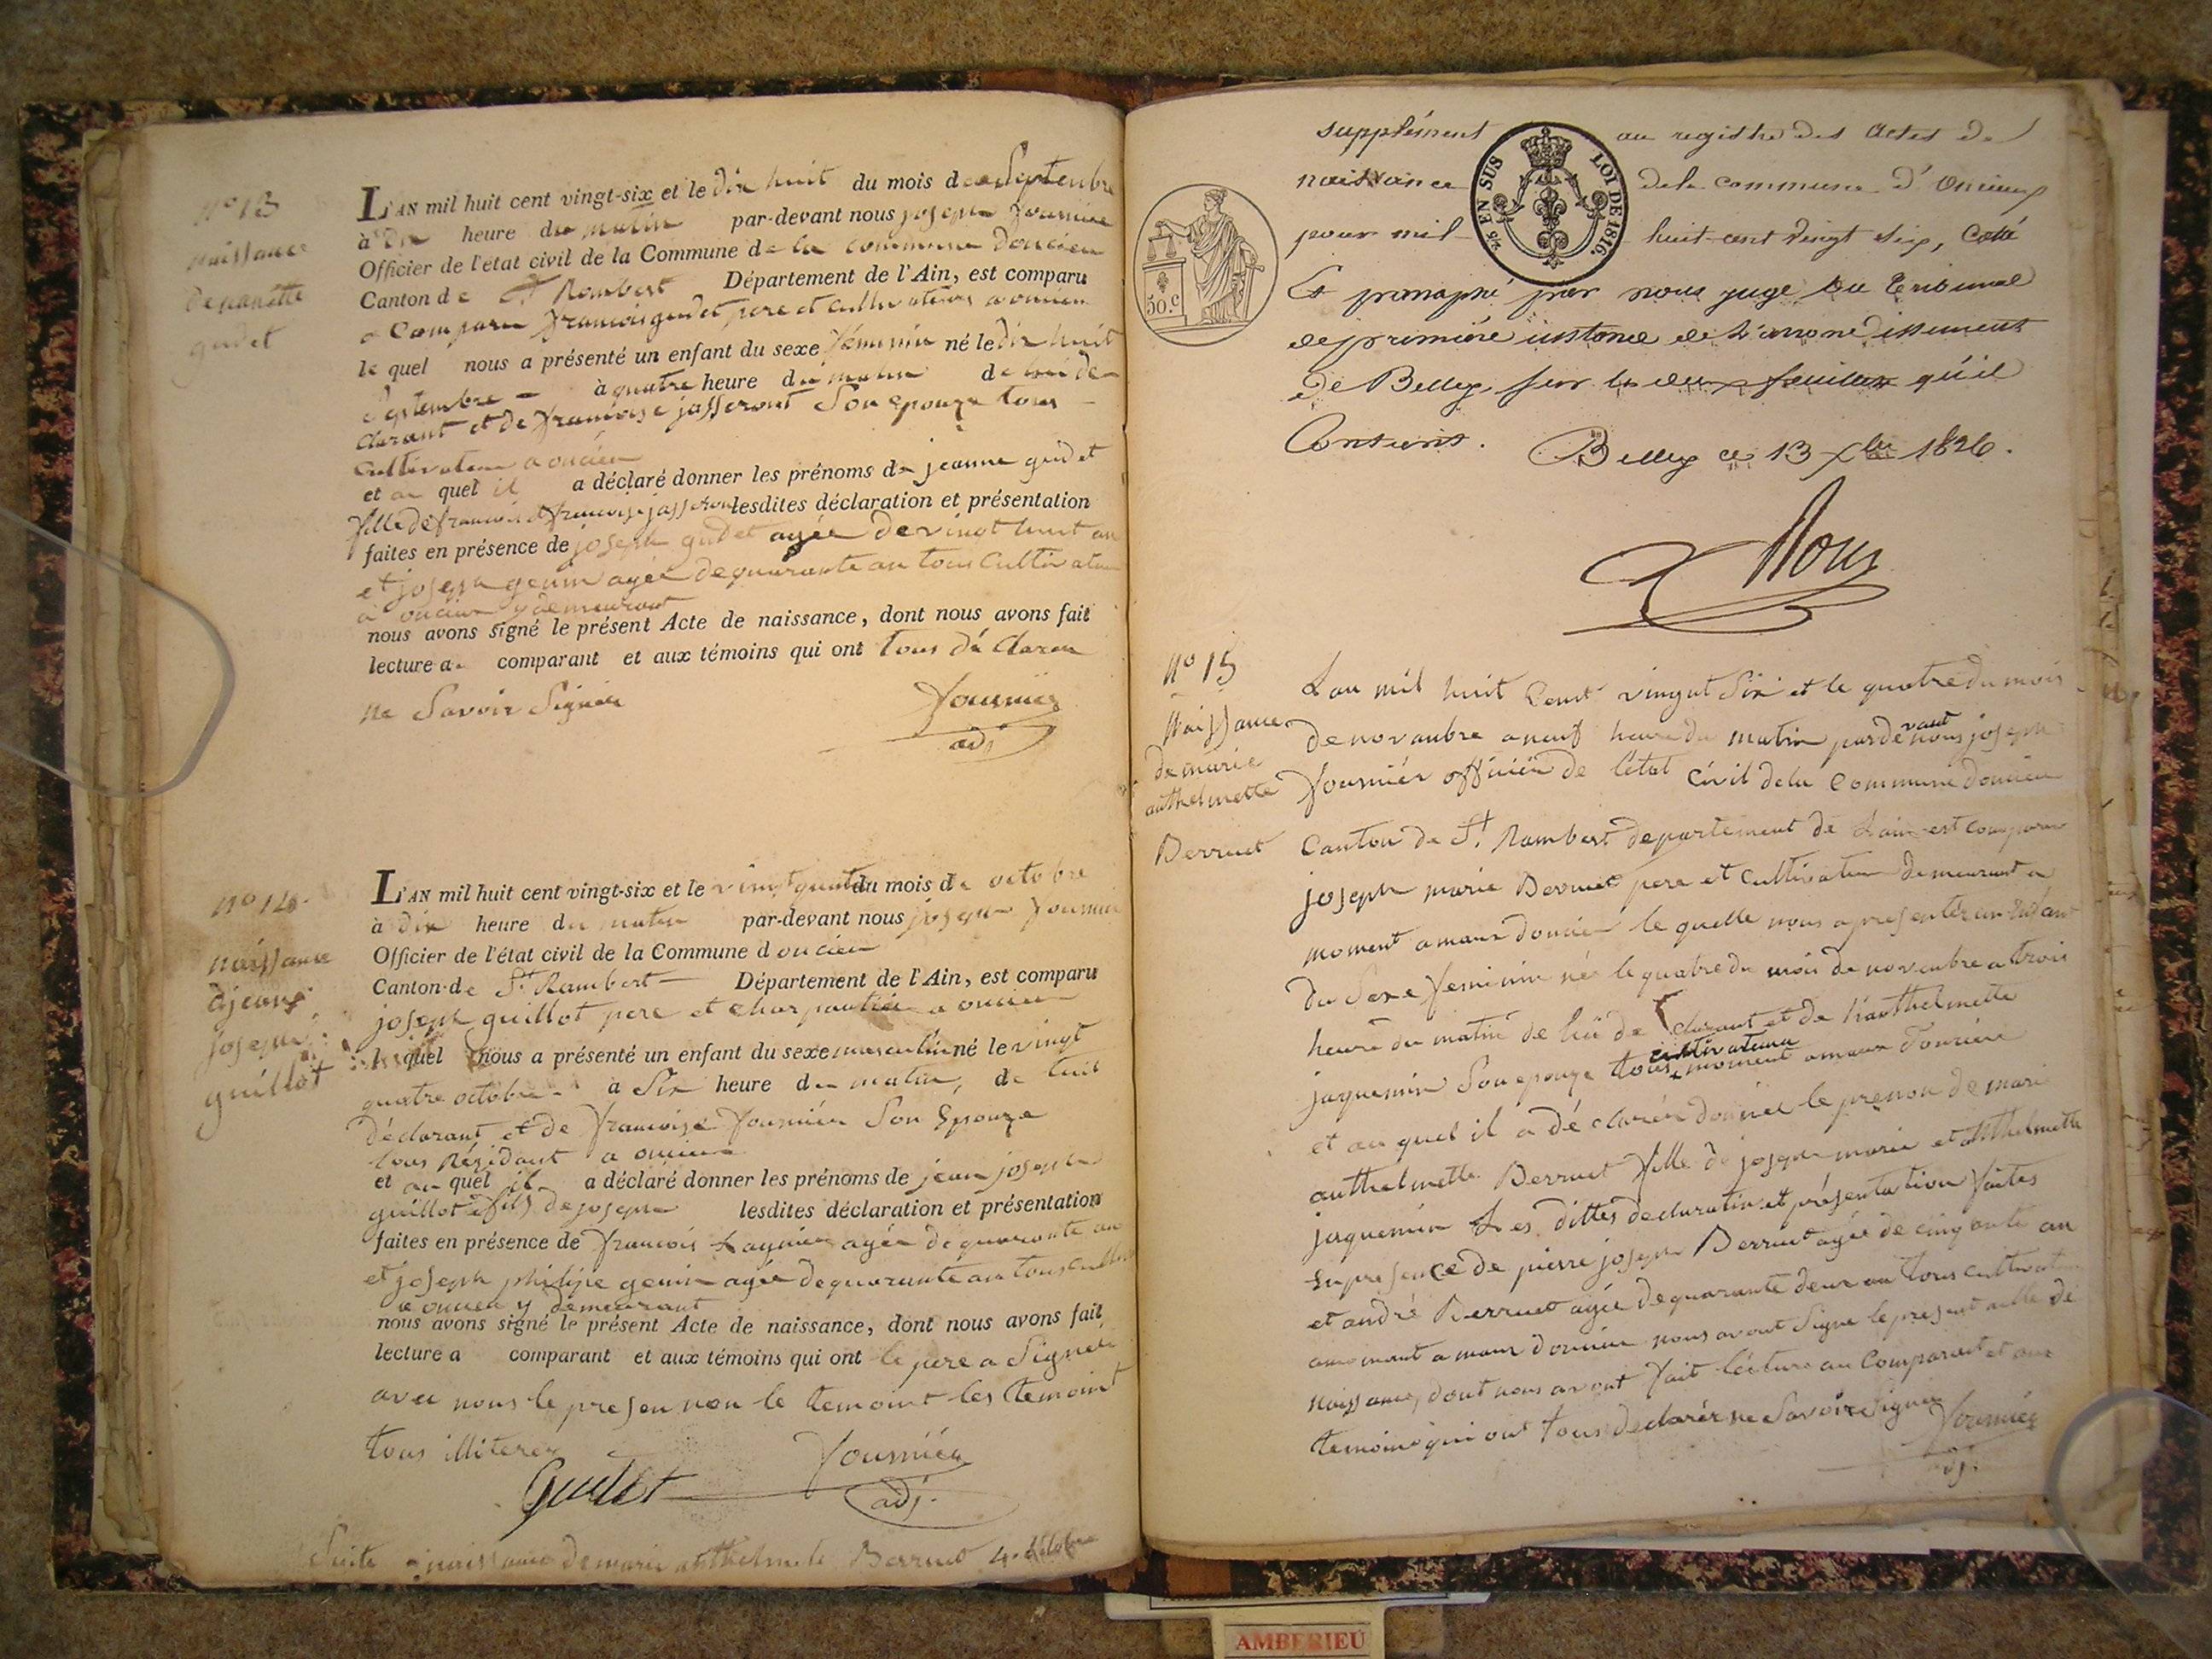 nº 13
naissance
de
gudet
L'AN mil huit cent vingt-six et le dix huit du mois de Septembre
à dix heure du matin par-devant nous joseph fournier
Officier de l'état civil de la Commune de la commune doncieu
Canton de St Rambert Département de l'Ain, est comparu
a Comparu francois gudet pere et cultivateur a oncieu
le quel nous a présenté un enfant du sexe féminin né le dix huit
Septembre - à quatre heure du matin de lui de
clarant et de francoise jasseront Son epouze tous
Cultivateur a oncieu
et au quel il a déclaré donner les prénoms de jeanne gudet
fille de francois et francoise jasseron lesdites déclaration et présentation
faites en présence de joseph gudet agée de vingt huit an
et joseph genin agée de quarante an tous Cultivateur
a oncieu y demeurant
nous avons signé le présent Acte de naissance, dont nous avons fait
lecture a comparant et aux témoins qui ont tous dé clarer
ne Savoir Signer
fournier
adj
nº 14
naissance
djean
joseph
guillot
L'AN mil huit cent vingt-six et le vingt quatre du mois de octobre
à dix heure du matin par-devant nous joseph fournier
Officier de l'état civil de la Commune d oncieu
Canton de St Rambert Département de l'Ain, est comparu
joseph guillot pere et charpantier a oncieu
le quel nous a présenté un enfant du sexe masculin né le vingt
quatre octobre à Six heure du matin, de luit
déclarant et de francoise fournier Son Epouze
tous Rézidant a oncieu
et au quel il a déclaré donner les prénoms de jean joseph
guillot fils de joseph lesdites déclaration et présentation
faites en présence de francois agée de quarante an
et joseph philipe genin agée de quarante an tous
a oncieu y demeurant
nous avons signé le présent Acte de naissance, dont nous avons fait
lecture a comparant et aux témoins qui ont le pere a Signer
avec nous le presen non le temoint les temoint
tous illiterez
fournier
adj.
Suite naissance de marie anthelmete Berruet 4.
supplément au registre des actes de
naissance de la commune d'oncieux
pour mil huit cent vingt six, Coté
Et paraphé par nous juge au tribunal
de première instance de l'arrondissement
de Belley, sur les deux feuilles qu'il
Contient.
Belley ce 13 Xbre 1826.
2/5 EN SUS
LOI DE 1816.
50.c
nº 15
Naissance
de marie
anthelmette
Berruet
L an mil huit Cent vingt Six et le quatre du mois
de novanbre a neuf heure du matin par de vant nous joseph
fournier officier de l'état civil dela Commune doncieu
Canton de St. Rambert departement de Lain est comparu
joseph marie Berruet pere et Cultivateur demeurant a
moment amaux doncieu le quelle nous a presenter un Enfant
du Sexe feminin né le quatre du mois de novenbre a trois
heure du matin de lui de clarant et de Lanthelmette
jaquemin Son epouze tous cultivateur moment amaux doncieu
et au quel il a dé clarér donner le prenon de marie
anthelmette Berruet fille de joseph marie et anthelmette
jaquemin Les dittes declaration et présentation faites
En presence de pierre joseph Berruet agée de cinquante an
et andré Berruet agée de quarante deux an tous cultivateur
amoment a maux doncieu nous avont Signe le present acte de
naissance, dont nous avont fait lecture au Comparant et aux
temoins qui ont tous declarér ne Savoir Signer
fournier
adj.
AMBERIEU